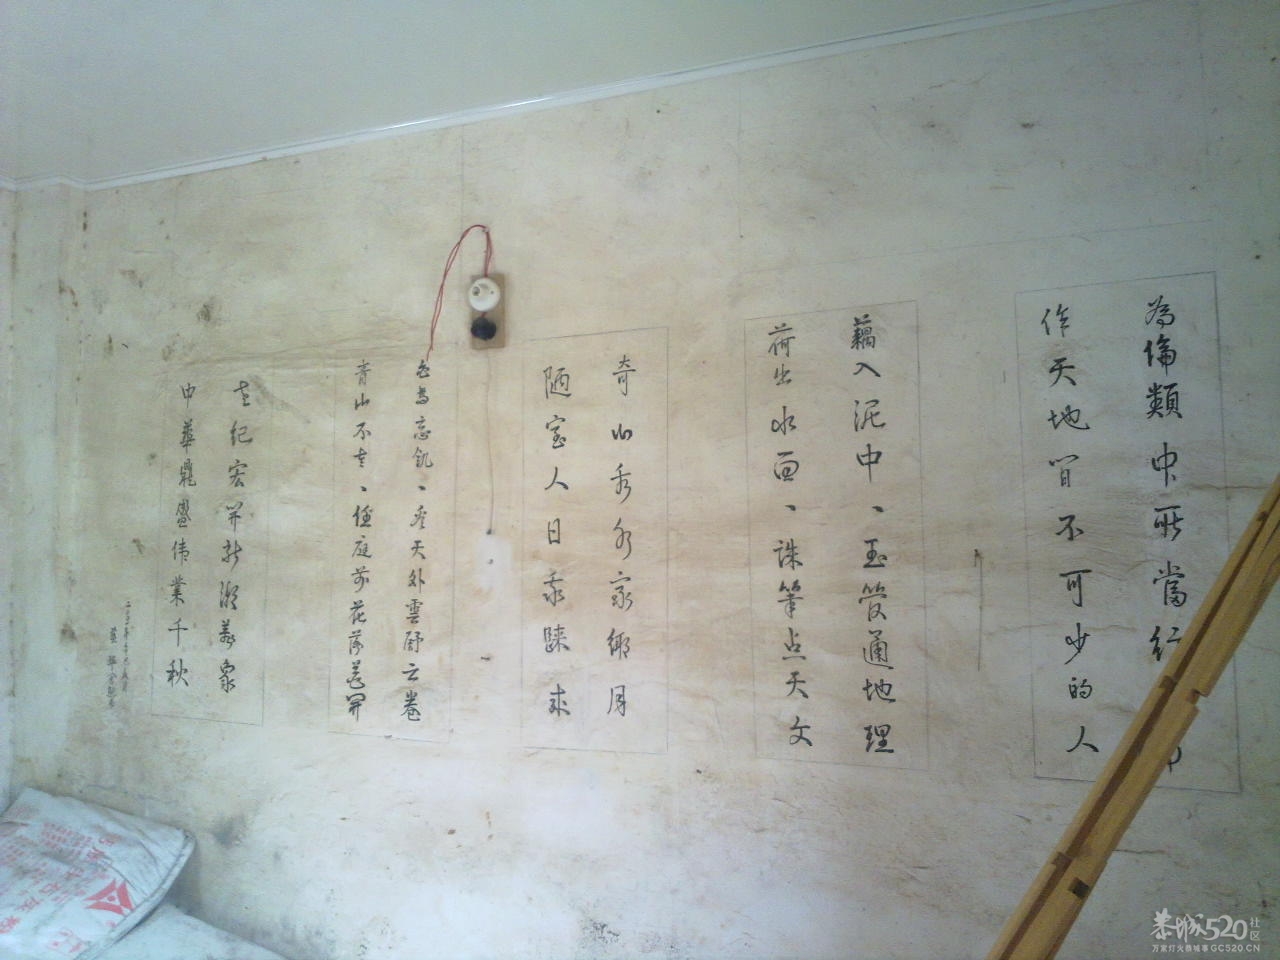 為倫類中所當行
作天地间不可少的人
藕入泥中、玉管通地理
荷出水面、誅筆点天文
奇山秀水家鄉月
陋室人日
白鸟忘飢、任天外雲舒云卷
青山不老、任庭前花落花開
世纪宏開新潮
中華鼎盛伟業千秋
恭城520社区
万家灯火恭城事GC520.CN